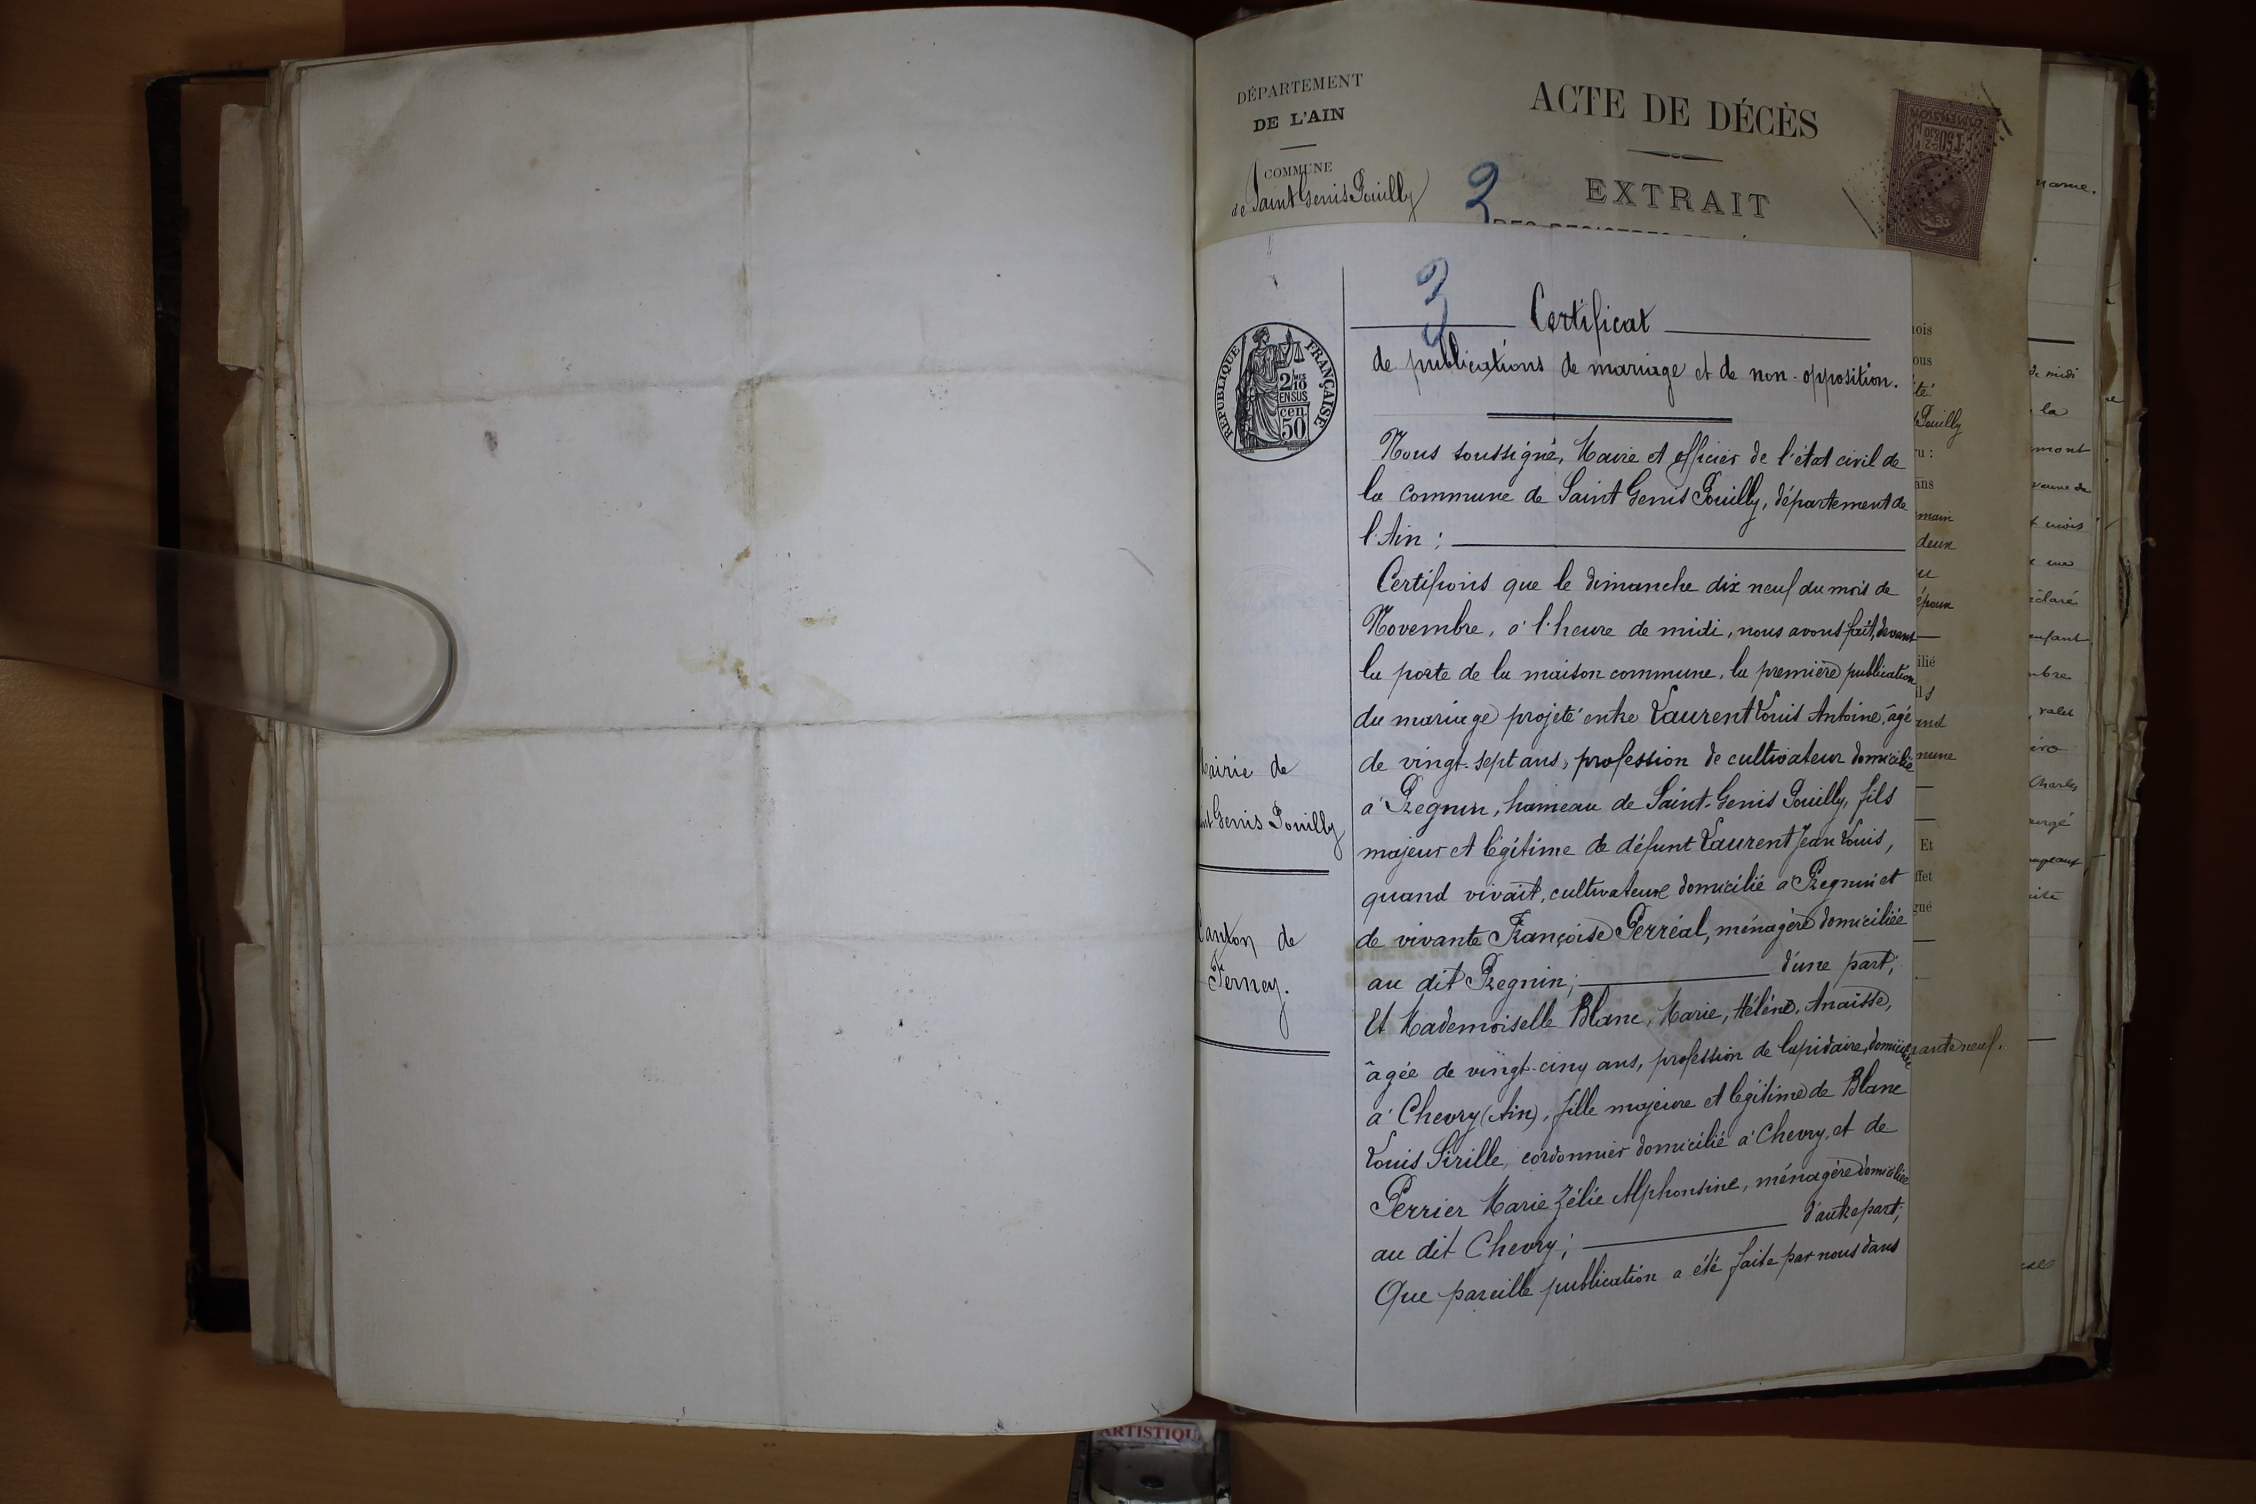 DÉPARTEMENT
DE L'AIN
COMMUNE
de Saint Genis Pouilly
ACTE DE DÉCÈS
2
EXTRAIT
3
Certificat
de publications de mariage et de non-opposition.
RÉPUBLIQUE FRANÇAISE
2/10
EN SUS
50 cen
Nous soussigné, Maire et officier de l'état civil de
la commune de Saint Genis Pouilly, département de
l'Ain :
Certifions que le dimanche dix neuf du mois de
Novembre, à l'heure de midi, nous avons fait, devant
la porte de la maison commune, la première publication
du mariage projeté entre Laurent Louis Antoine, âgé
de vingt-sept ans, profession de cultivateur domicilié
à Pregnin, hameau de Saint-Genis Pouilly, fils
majeur et légitime de défunt Laurent Jean Louis,
quand vivait, cultivateur domicilié à Pregnin et
de vivante Françoise Perréal, ménagère domiciliée
au dit Pregnin; d'une part;
Et Mademoiselle Blanc, Marie, Hélène, Anaïsse,
âgée de vingt-cinq ans, profession de lapidaire, domiciliée
à Chevry (Ain), fille majeure et légitime de Blanc
Louis Sirille, cordonnier domicilié à Chevry, et de
Perrier Marie Zélie Alphonsine, ménagère domiciliée
au dit Chevry; d'autre part;
Que pareille publication a été faite par nous dans
Mairie de
Saint Genis Pouilly
Canton de
Ferney.
ois
ous
té
Pouilly
u :
ans
main
deux
époux
ilié
ils
and
mune
Et
ffet
gué
ante neuf.
de midi
la
mont
mois
une
éclaré
enfant
mbre
valet
Charles
ARTISTIQU